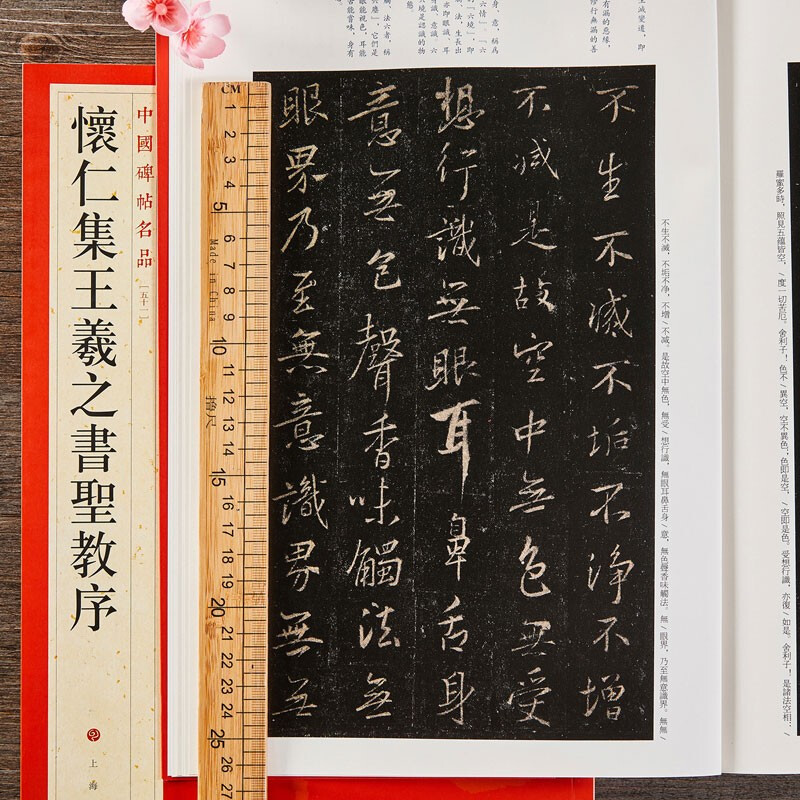 中國碑帖名品
[五十一]
懷仁集王羲之書聖教序
上海
生滅變遷，即
有漏的惡緣，
修行無漏的善
身、意，稱爲
羅蜜多時，照見五蘊皆空，/度一切苦厄。舍利子！色不/異空，空不異色；色即是空，/空即是色。受想行識，亦復/如是。舍利子！是諸法空相，/
不生不滅，不垢不净，不增/不減。是故空中無色，無受/想行識，無眼耳鼻舌身/意，無色聲香味觸法。無/眼界，乃至無意識界。無無/
不生不滅不垢不淨不增
不減是故空中無色無受
想行識無眼耳鼻舌身
意無色聲香味觸法無
眼界乃至無意識界無無
CM
1
2
3
4
5
6
7
8
9
10
11
12
13
14
15
16
17
18
19
20
21
22
23
24
25
26
27
Made in China
擼尺